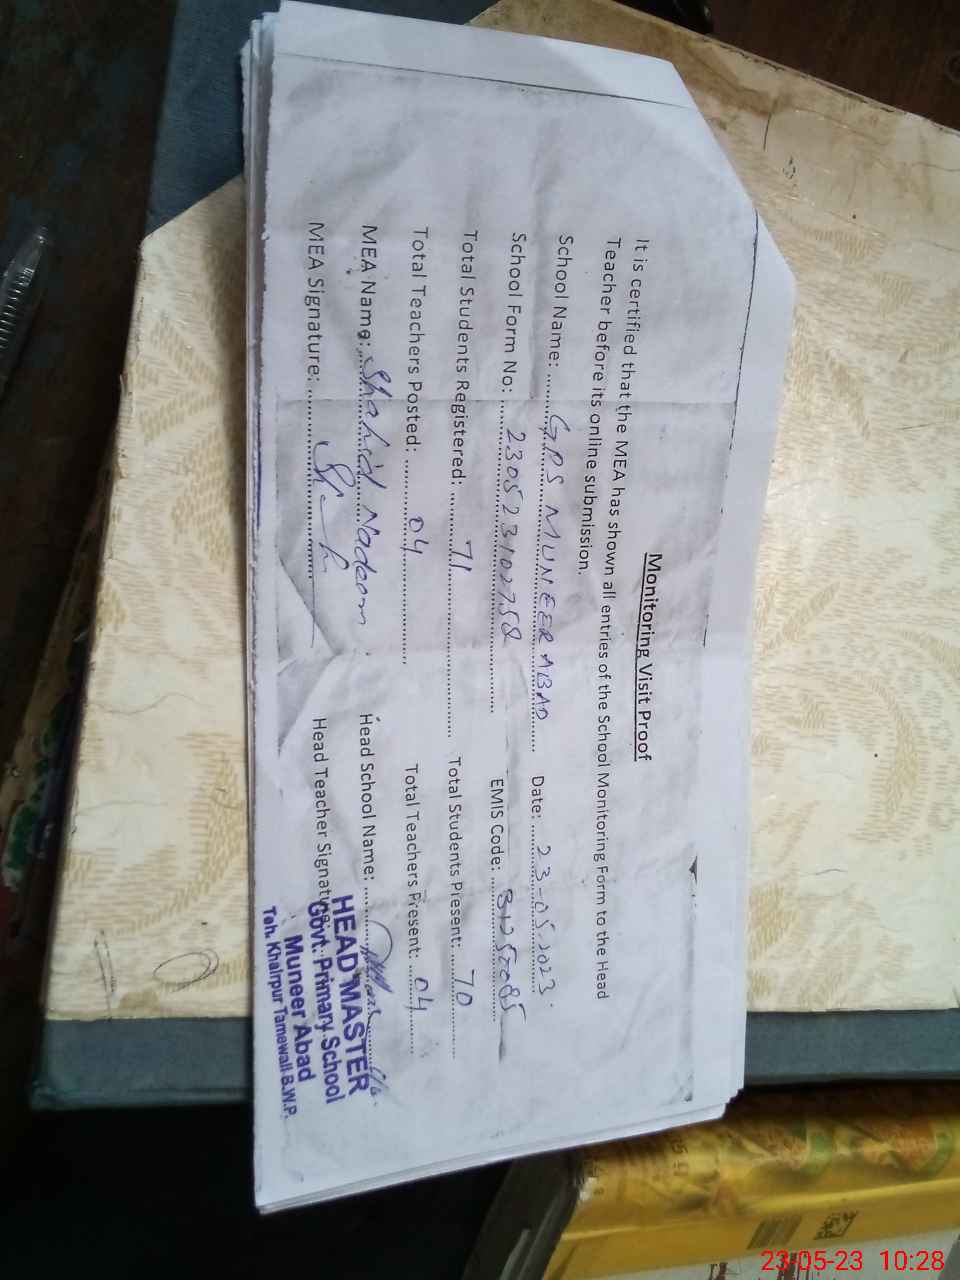 Monitoring Visit Proof
It is certified that the MEA has shown all entries of the School Monitoring Form to the Head
Teacher before its online submission.
School Name: GPS MUNEER ABAD Date: 23-05-2023
School Form No: 230523102758 EMIS Code: 31250085
Total Students Registered: 71 Total Students Present: 70
Total Teachers Posted: 04 Total Teachers Present: 04
MEA Name: Shahid Nadeem Head School Name:
MEA Signature: Head Teacher Signature:
HEAD MASTER
Govt: Primary School
Muneer Abad
Teh. Khairpur Tamewali B.W.P.
23-05-23 10:28